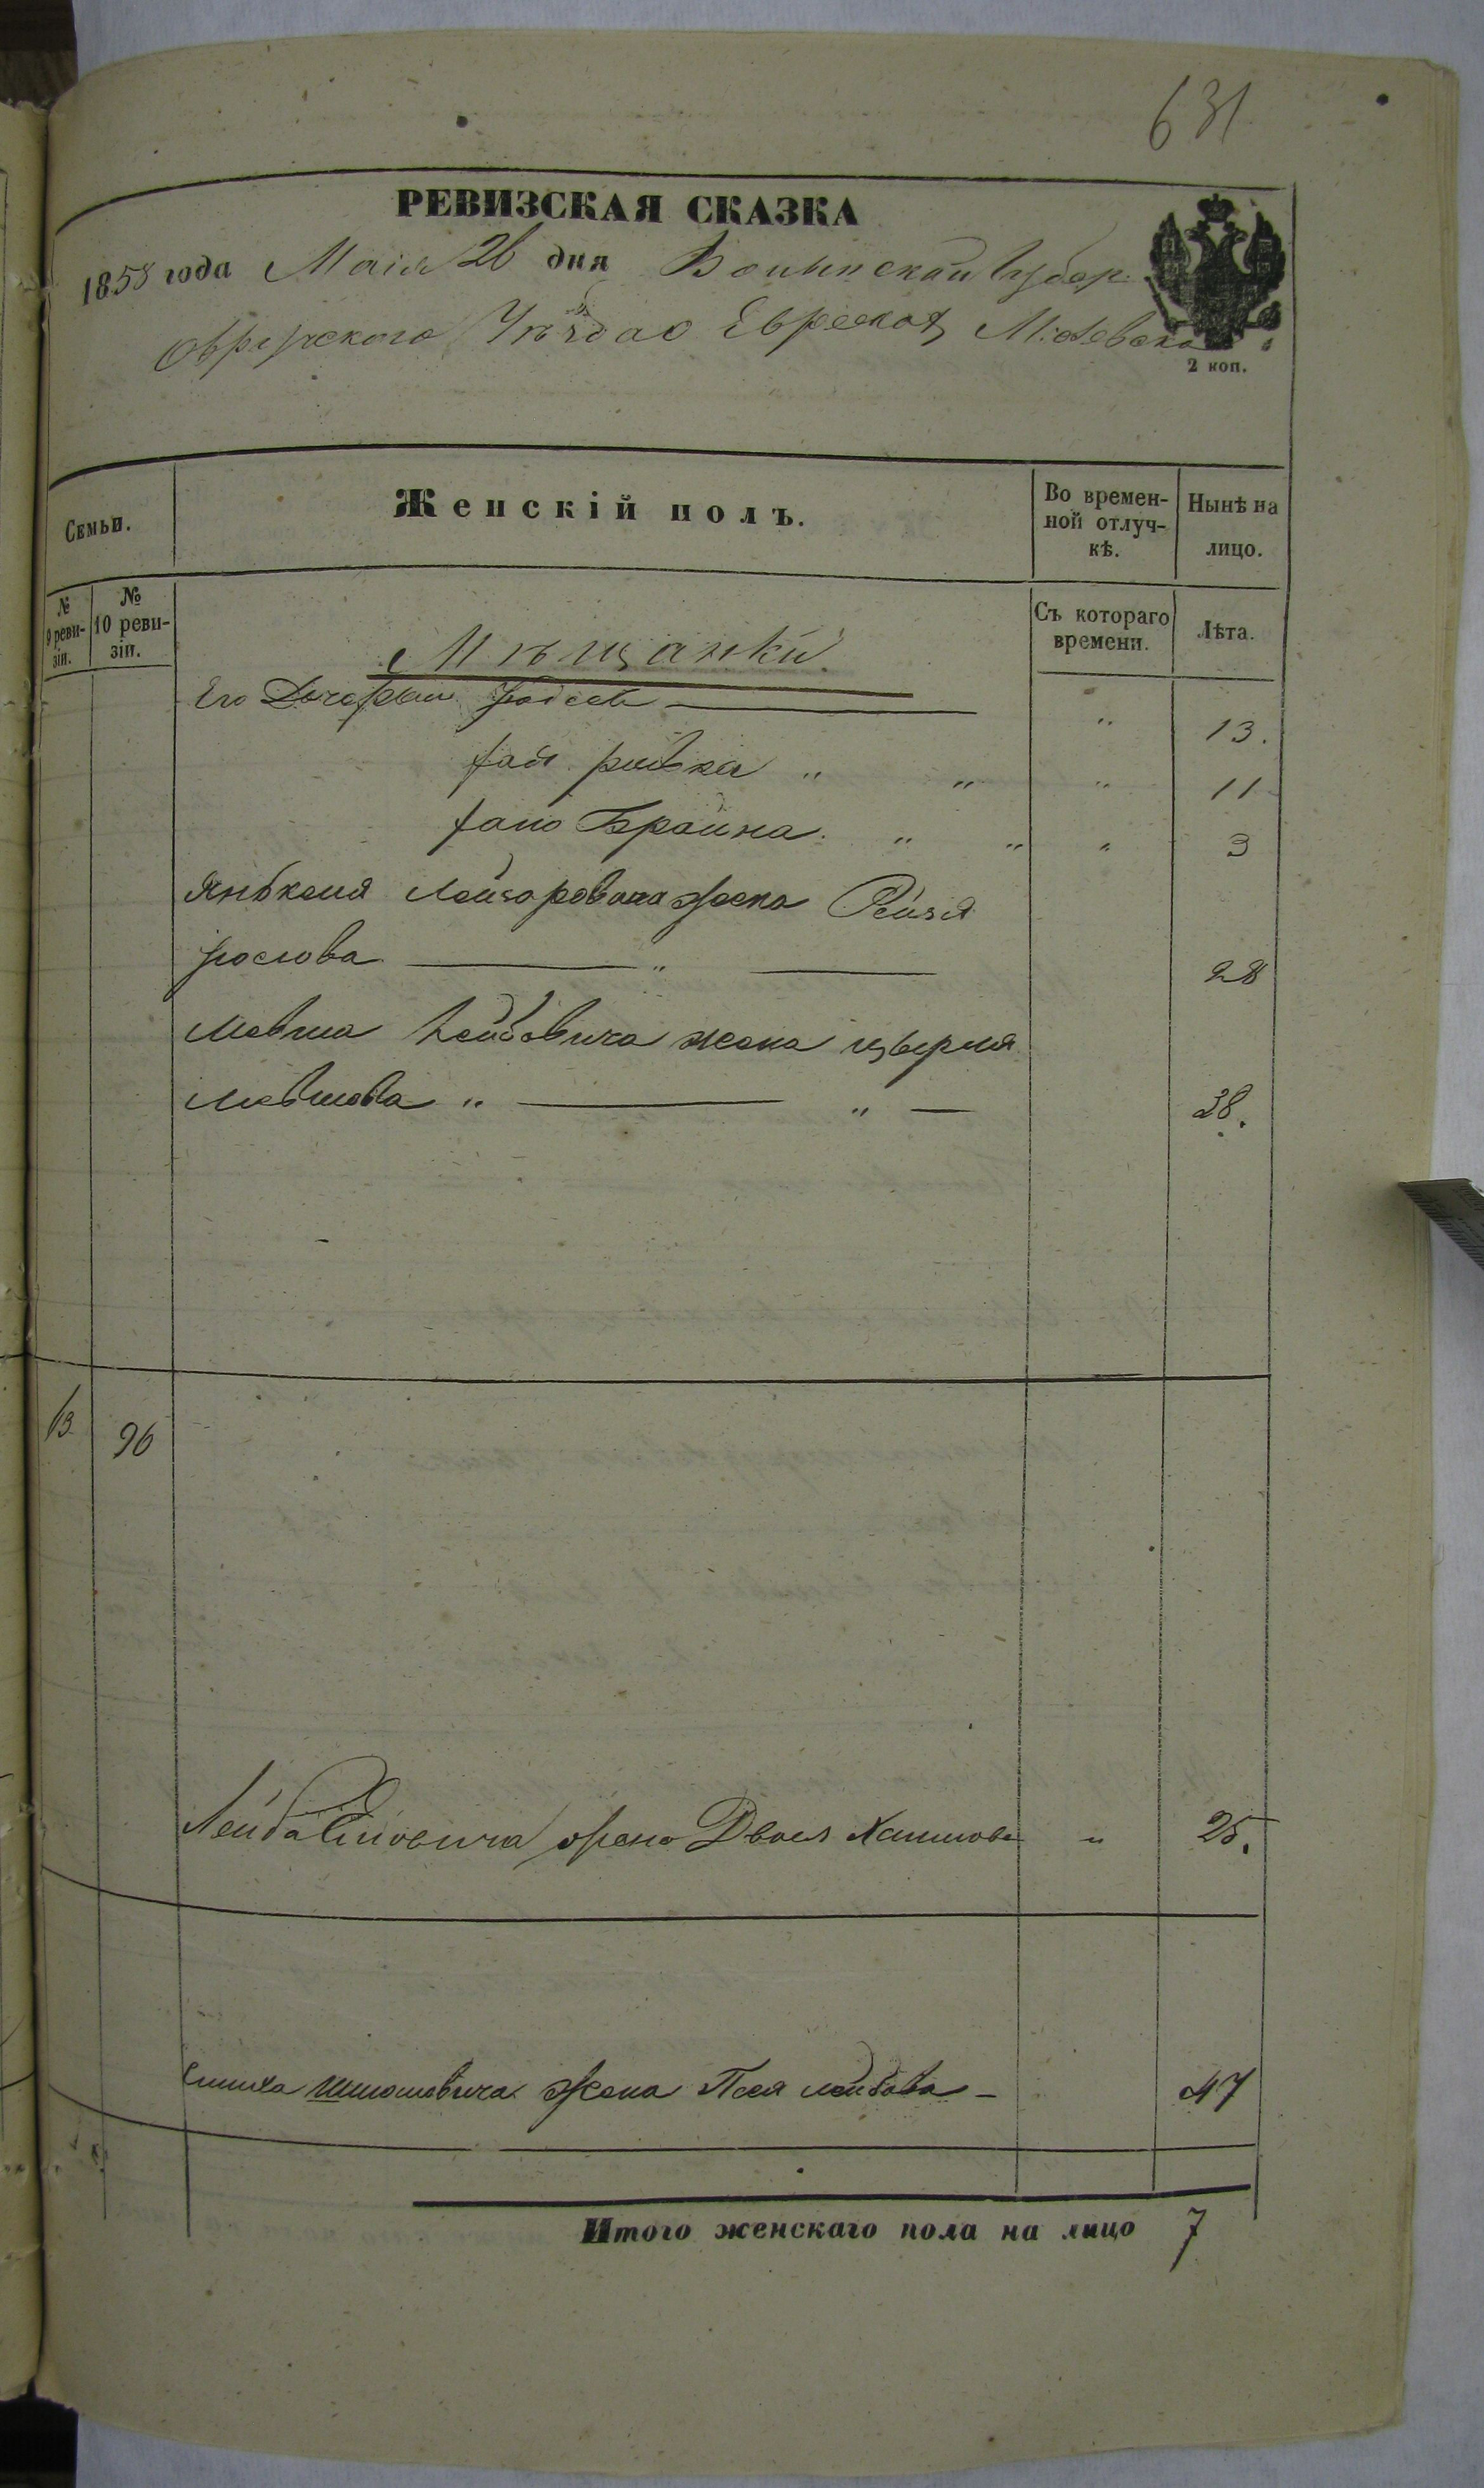 631
РЕВИЗСКАЯ СКАЗКА
1858 года Маія 26 дня Волынской Губер.
Овручского Уѣзда о Евреяхъ М:
2 коп.
Семьи.
Женскій полъ.
Во времен-
ной отлуч-
кѣ.
Нынѣ на
лицо.
№
9 реви-
зіи.
№
10 реви-
зіи.
Съ котораго
времени.
Лѣта.
Мѣщанки
Его Дочери " 13.
ривка " " " 11
Браина " " " 3
Янькеля Лейзоровича жена Рейзя
" 28
Мовша Лейбовича жена
Мовшова " " 38.
13 96
Лейба жена Двося Хаимова " 25.
жена Песя Лейбова 47
Итого женскаго пола на лицо 7